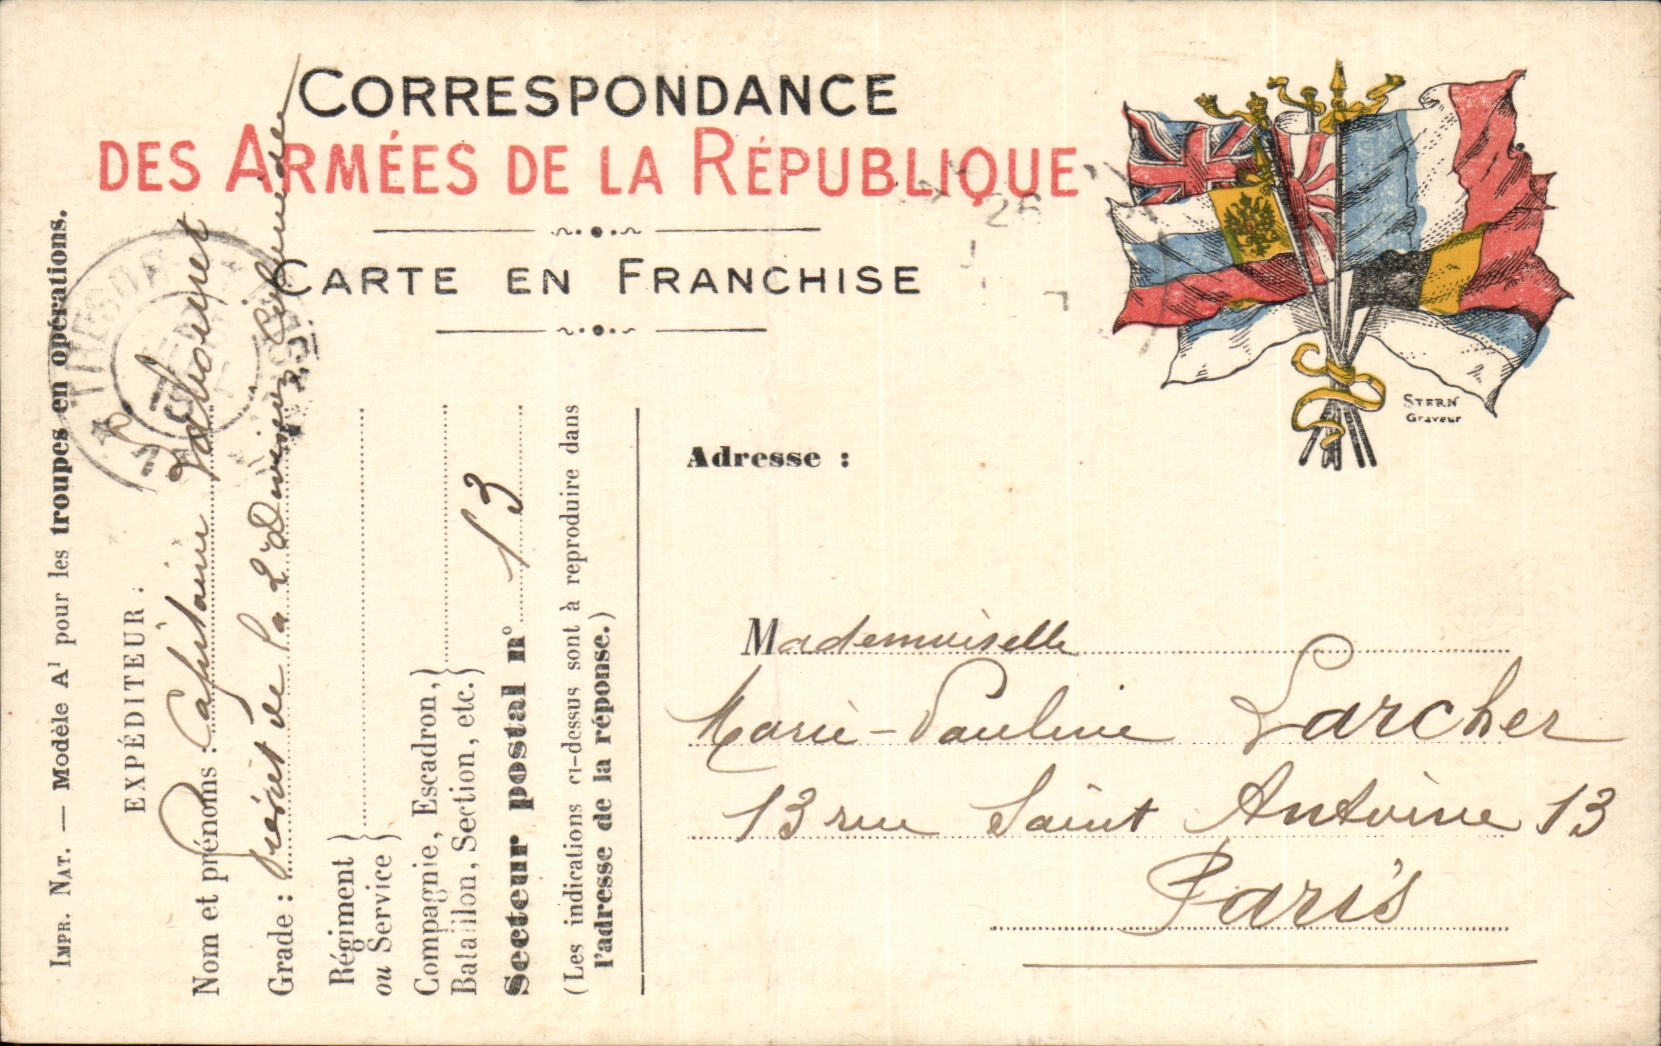 CORRESPONDANCE
DES ARMÉES DE LA RÉPUBLIQUE
CARTE EN FRANCHISE
STERN
Graveur
IMPR. NAT. — Modèle A¹ pour les troupes en opérations.
EXPÉDITEUR :
Nom et prénoms : Capitaine
Grade : de la 2e Division
Régiment
ou Service
Compagnie, Escadron,
Bataillon, Section, etc.
Secteur postal n° 13
(Les indications ci-dessus sont à reproduire dans
l'adresse de la réponse.)
Adresse :
Mademoiselle
Marie-Pauline Larcher
13 rue Saint Antoine 13
Paris